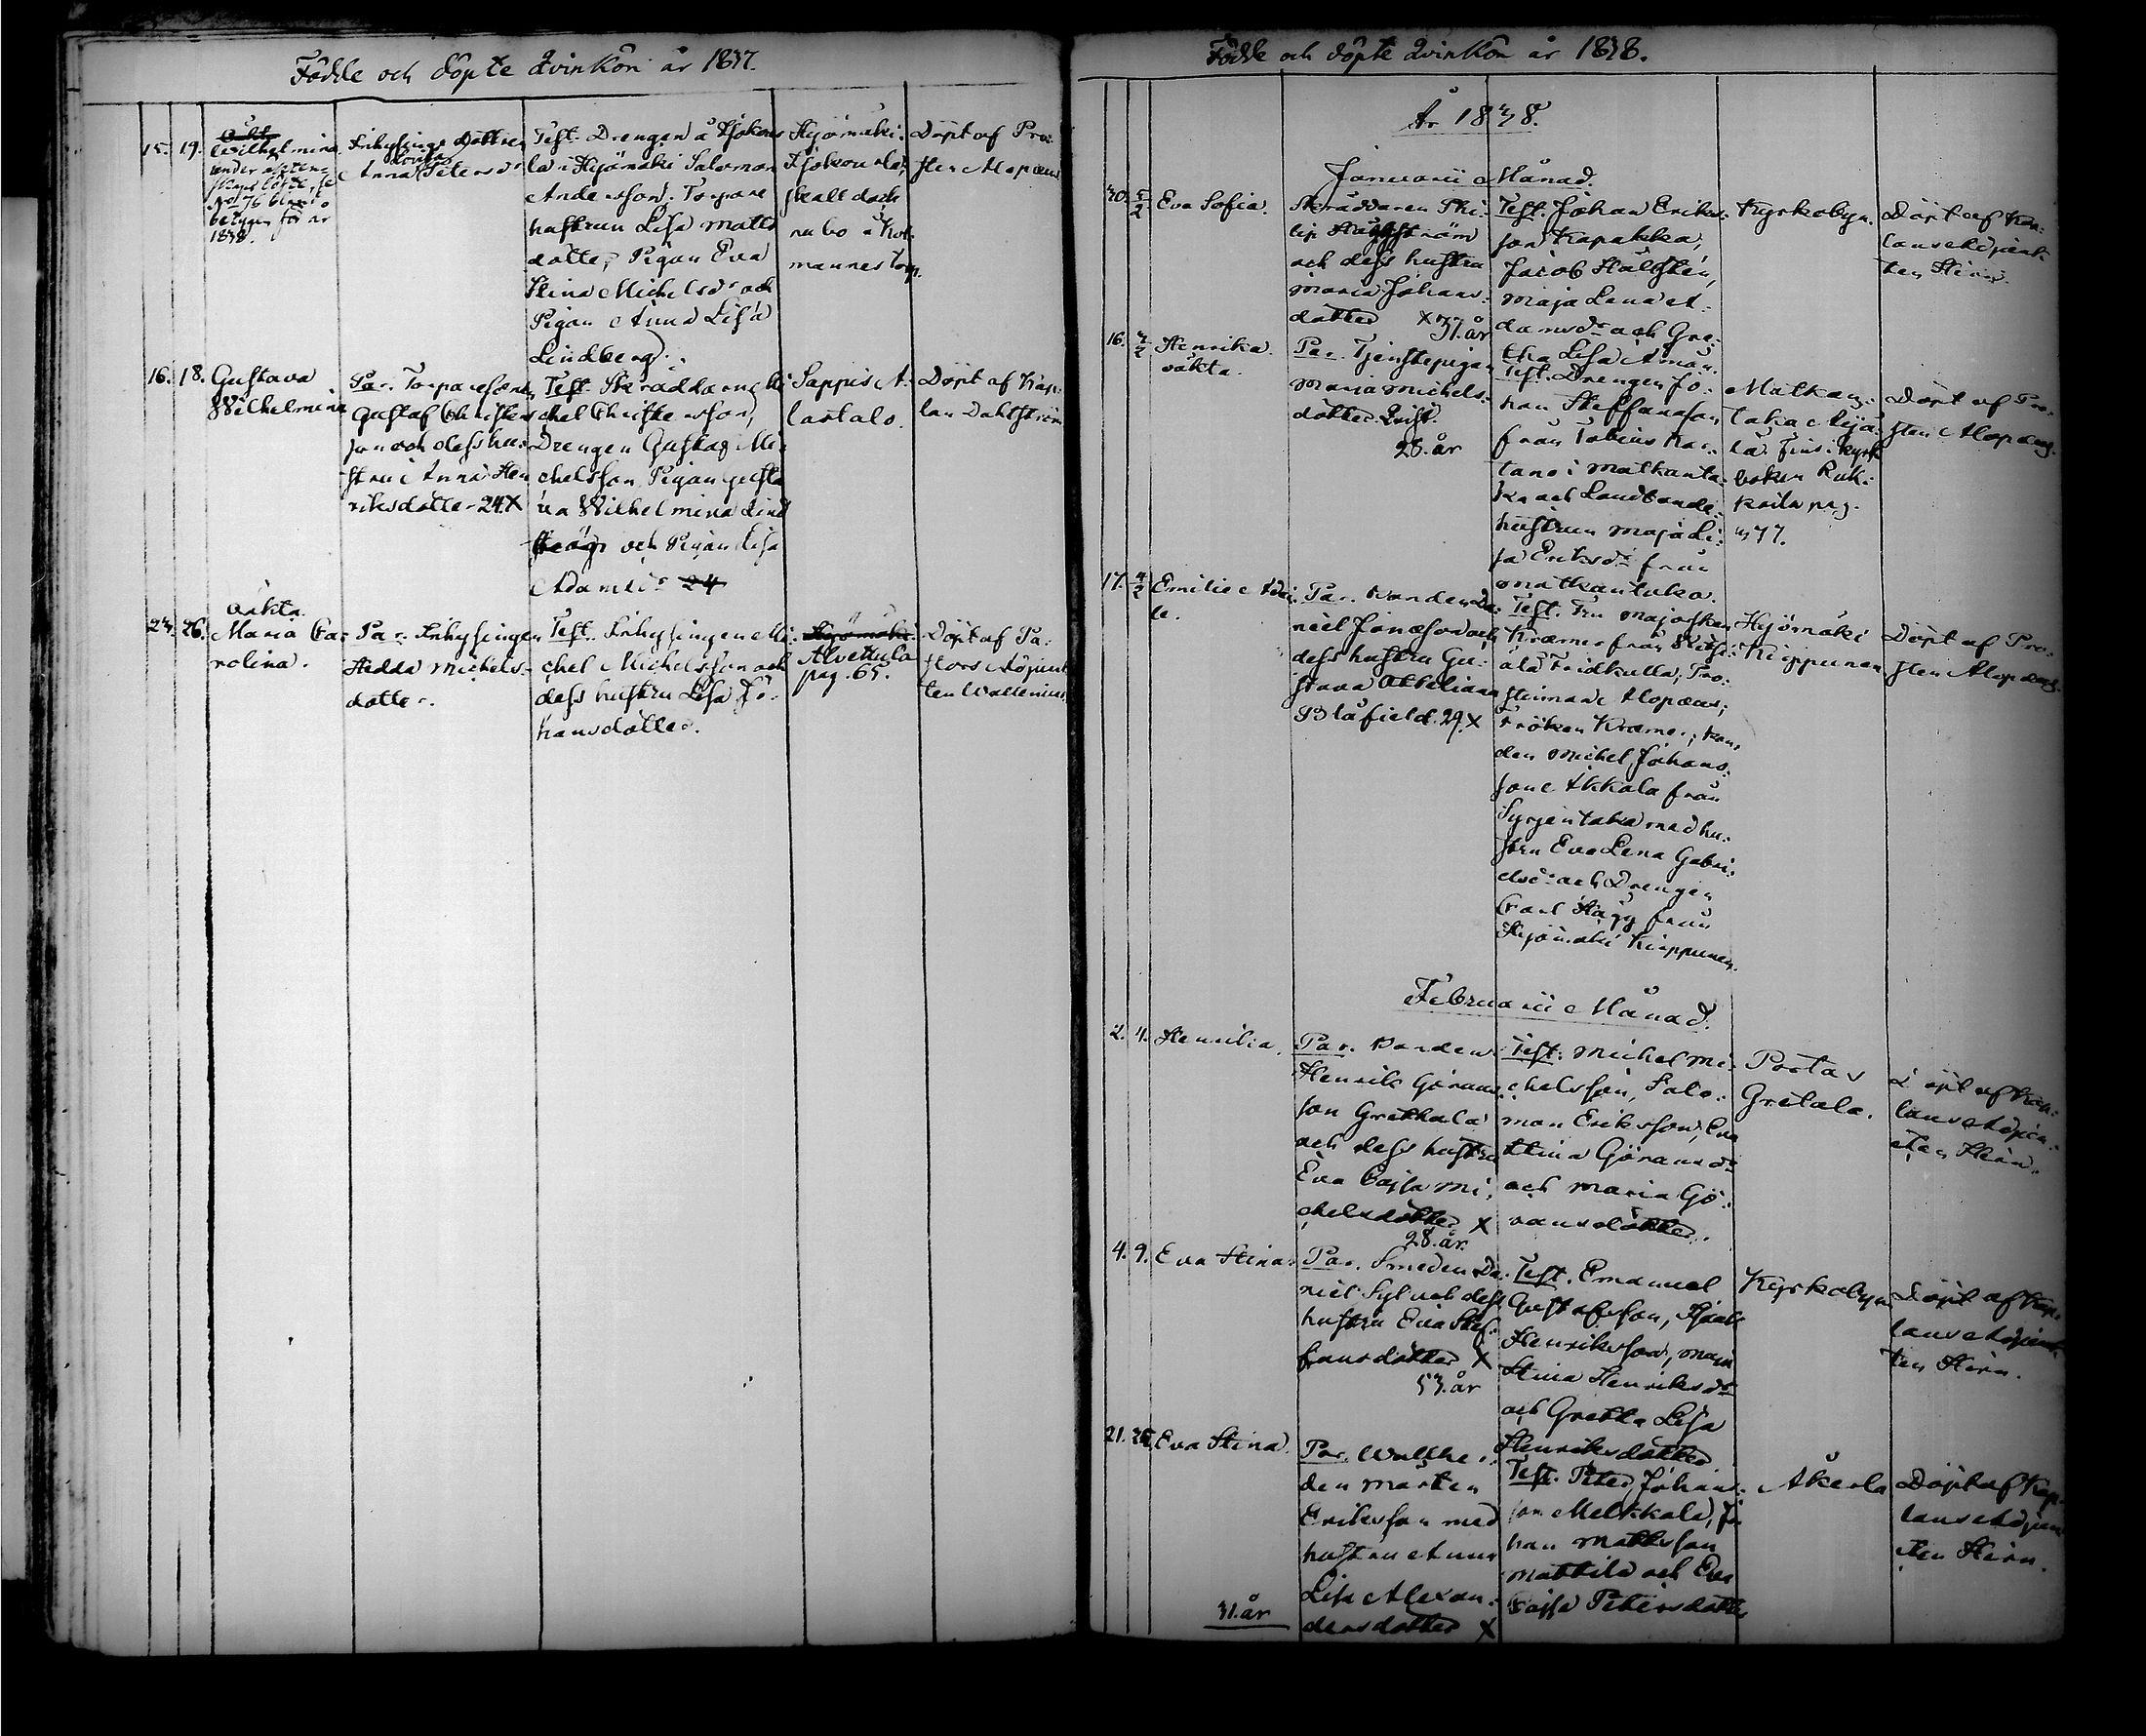 Födde och döpte Qvinkön år 1837.
15. 19.
Wilhelmina
1838.
Inhysings dottren
Lovisa
Anna Petersdr
Test. Drengen å
la i Hyömäki Salomon
Andersson. Torpare
hustrun Lisa Matts
dotter, Pigan Eva
Stina Michelsdr och
Pigan Anna Lisa
Lindberg.
Hyömäki
skall dock
nu bo å
mannes torp.
Döpt af Pro-
sten Alopæus
16. 18.
Gustava
Wilhelmina
Par. Torparesonen
Gustaf Christers
son och dess hu-
stru Anna Hen
riksdotter 24. X
Test. Skräddaren Mi
chel Christersson,
Drengen Gustaf Mi-
chelsson, Pigan Justi
na Wilhelmina Lind
och Pigan Lisa
Adamsdr 24
Sappis A-
lastalo.
Döpt af Kap-
lan Dahlström
23. 26.
oäkta.
Maria Ca-
rolina.
Par. Inhysingen
Hedda Michels-
dotter.
Test. Inhysingen Mi-
chel Michelsson och
dess hustru Lisa Jo-
hansdotter.
Hyömäki
Alvettula
pag. 65.
Döpt af Pa-
stors Adjunk
ten Wallenius
Födde och döpte Qvinkön år 1838.
År 1838.
Januarii Månad.
30. 5/2
Eva Sofia.
Skräddaren Phi-
lip Häggström
och dess hustru
Maria Johans-
dotter X 31. år
Test. Johan Eriks-
son Kapakka,
Jacob Hällsten,
Maja Lena A-
damsdr och Gre-
tha Lisa Åman.
Kyrkobyn.
Döpt af Kap-
lans Adjunk-
ten Heirn.
16.
Henrika.
oäkta.
Par. Tjenstepigan
Maria Michels-
dotter Qvist.
28. år
Test. Drengen Jo-
han Steffansson
från Tobius Kar-
tano i Matkanta-
ka och Landbonde
hustrun Maja Li-
sa Eriksdr från
Matkantaka.
Matkan-
taka Äijä-
lä. Fins i kyrk
boken Ruk-
koila pag.
Döpt af Pro-
sten Alopæus.
17. 4/2
Emilie Ade-
le.
Par. Bonden Da-
niel Jonasson och
dess hustru Gu-
stava Ottiliana
Blåfield. 29. X
Test. Fru Majorskan
Kræmer från
Fridkulla, Pro-
Alopæus,
Fröken Kræmer, Bon-
den Michel Johans-
son Akkala från
Syrjentaka med hu-
stru Eva Lena Gabri-
elsdr och Drengen
Carl Hägg från
Hyömäki Kieppunen.
Hyömäki
Kieppunen
Döpt af Pro-
sten Alopæus.
Februarii Månad.
2. 4.
Henrika.
Par. Bonden
Henrik Görans-
son Grethala
och dess hustru
Eva Cajsa Mi-
chelsdotter X
28. år
Test. Michel Mi-
chelsson, Salo-
mon Eriksson, Eva
Stina Göransdr
och Maria Gö-
ransdotter.
Portas
Gretala.
Döpt af Kap-
lans Adjun-
cten Heirn.
4. 9.
Eva Stina.
Par. Smeden Da-
niel Syl och dess
hustru Eva Stef-
fansdotter X
Test. Emanuel
Gustafsson, Isaak
Henriksson, Maja
Stina Henriksdr
och Gretha Lisa
Henriksdotter
Kyrkobyn
Döpt af Kap-
lans Adjunk-
ten Heirn.
21. 25.
Eva Stina.
31. år
Par.
den Mårten
Eriksson med
hustru Anna
Lisa Alexan-
dersdotter X
Test. Peter Johans-
son Melkkala, Jo
han Mattsson
Mattila och Eva
Cajsa Petersdotter
Åkerla
Döpt af Kap-
lans Adjun
cten Heirn.